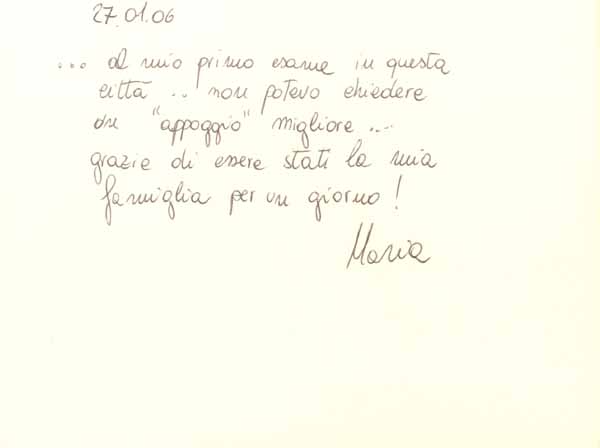 27.01.06
... al mio primo esame in questa
città .. non potevo chiedere
un "appoggio" migliore ...
grazie di essere stati la mia
famiglia per un giorno!
Maria